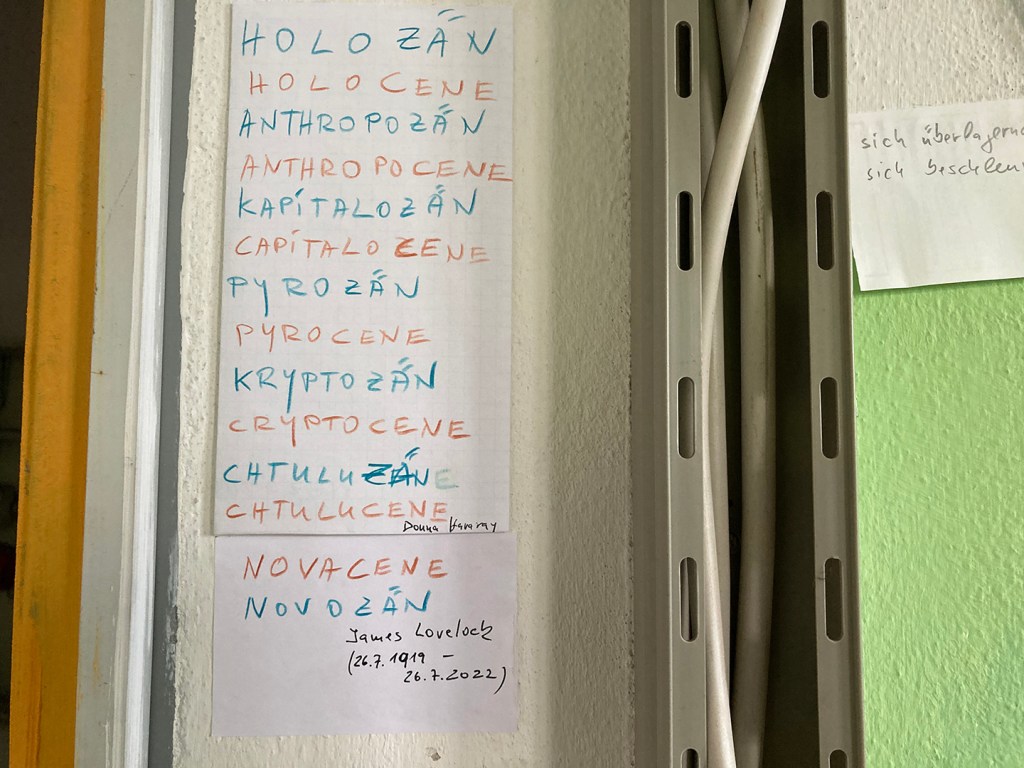 HOLOZÄN
HOLOCENE
ANTHROPOZÄN
ANTHROPOCENE
KAPITALOZÄN
CAPITALOCENE
PYROZÄN
PYROCENE
KRYPTOZÄN
CRYPTOCENE
CHTULUZÄNE
CHTULUCENE
Donna Hararay
NOVACENE
NOVOZÄN
James Lovelock
(26.7.1919 –
26.7.2022)
sich
sich